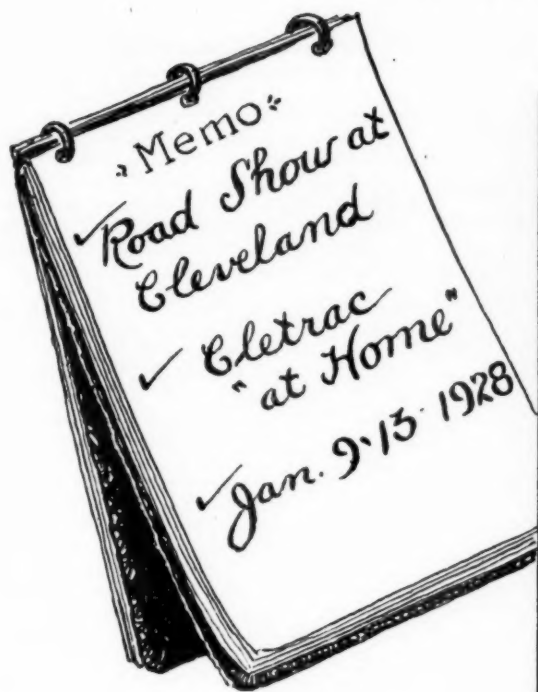 Memo
Road Show at
Cleveland
Cletrac
"at Home"
Jan. 9-13 1928